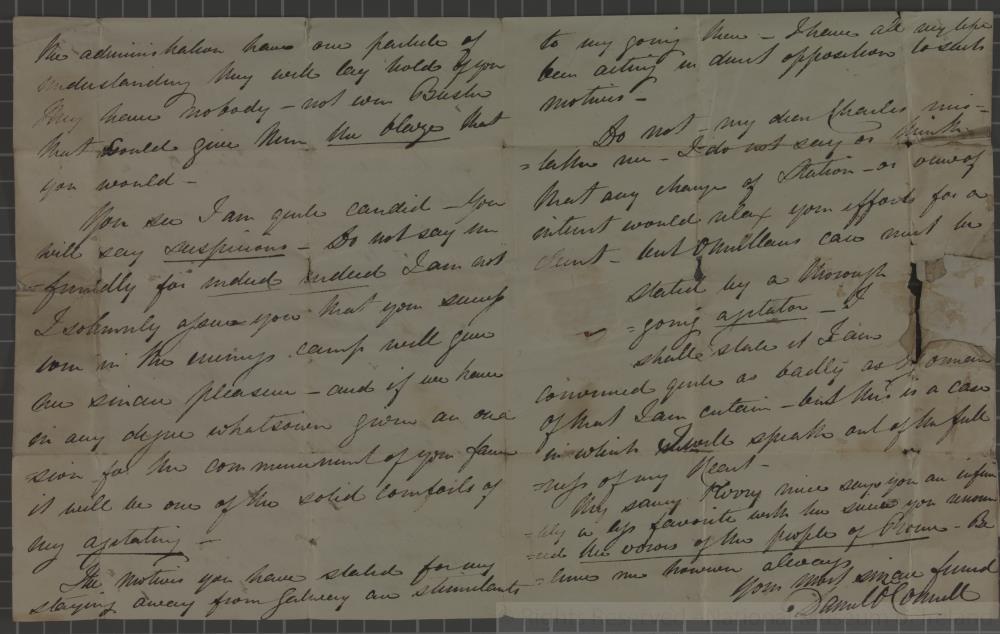 the administration have one particle of
understanding they will lay hold of you
They have nobody – not even Bushe
that could give them the blaze that
you would –
You see I am quite candid – You
will say suspicious – Do not say un
friendly for indeed indeed I am not
I solemnly assure you that your success
even in the enemy's camp will give
me sincere pleasure – and if we have
in any degree whatsoever given an occa
=sion for the commencement of your fame
it will be one of the solid comforts of
my agitating –
The motives you have stated for my
staying away from Galway are stimulants
to my going there – I have all my life
been acting in direct opposition to such
motives –
Do not – my dear Charles mis=
=take me – I do not say or think
that any change of Station – or view of
interest would relax your efforts for a
client – but O'Mullans case must be
stated by a thorough
=going agitator – I
shall state it I am
convinced quite as badly as
of that I am certain – but this is a case
in which I will speak out of the full
=ness of my heart –
My saucy Tory niece says you are infin
=itely a less favorite with her since you renoun
=ced the errors of the people of Rome – Be
=lieve me however always
Your most sincere friend
Daniel O'Connell